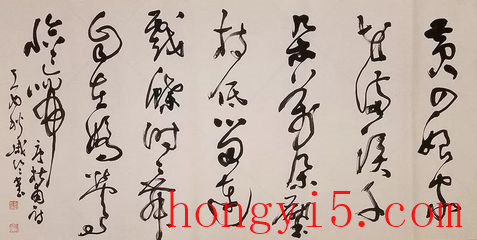 黄四娘家
花满蹊千
朵万朵压
枝低留连
戏蝶时时舞
自在娇莺
恰恰啼
杜甫诗
hongyi5.com